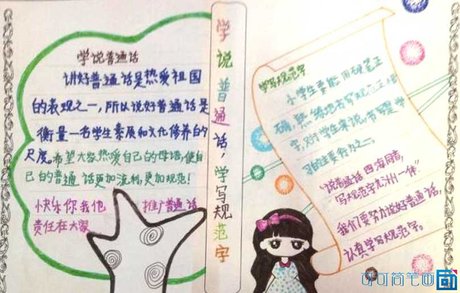 学说普通话
讲好普通话是热爱祖国
的表现之一，所以说好普通话是
衡量一名学生素质和文化修养的
尺度。希望大家热爱自己的母语，使自
己的普通话更加流利，更加规范！
快乐你我他
推广普通话
责任在大家
学说普通话，学写规范字
学写规范字
小学生要能用硬笔正
确、熟练地书写规范正楷
字，对学生来说，书写学
习的主要行为之一。
“说普通话四海同音，
写规范字九州一体”
我们要努力说好普通话，
认真学写规范字。